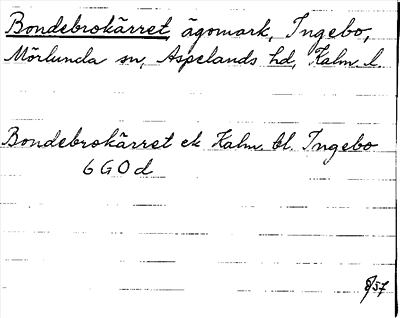 Bondebrokärret, ägomark, Ingebo,
Mörlunda sn, Aspelands hd, Kalm. l.
Bondebrokärret ek Kalm. bl. Ingebo
6G0d
8/57